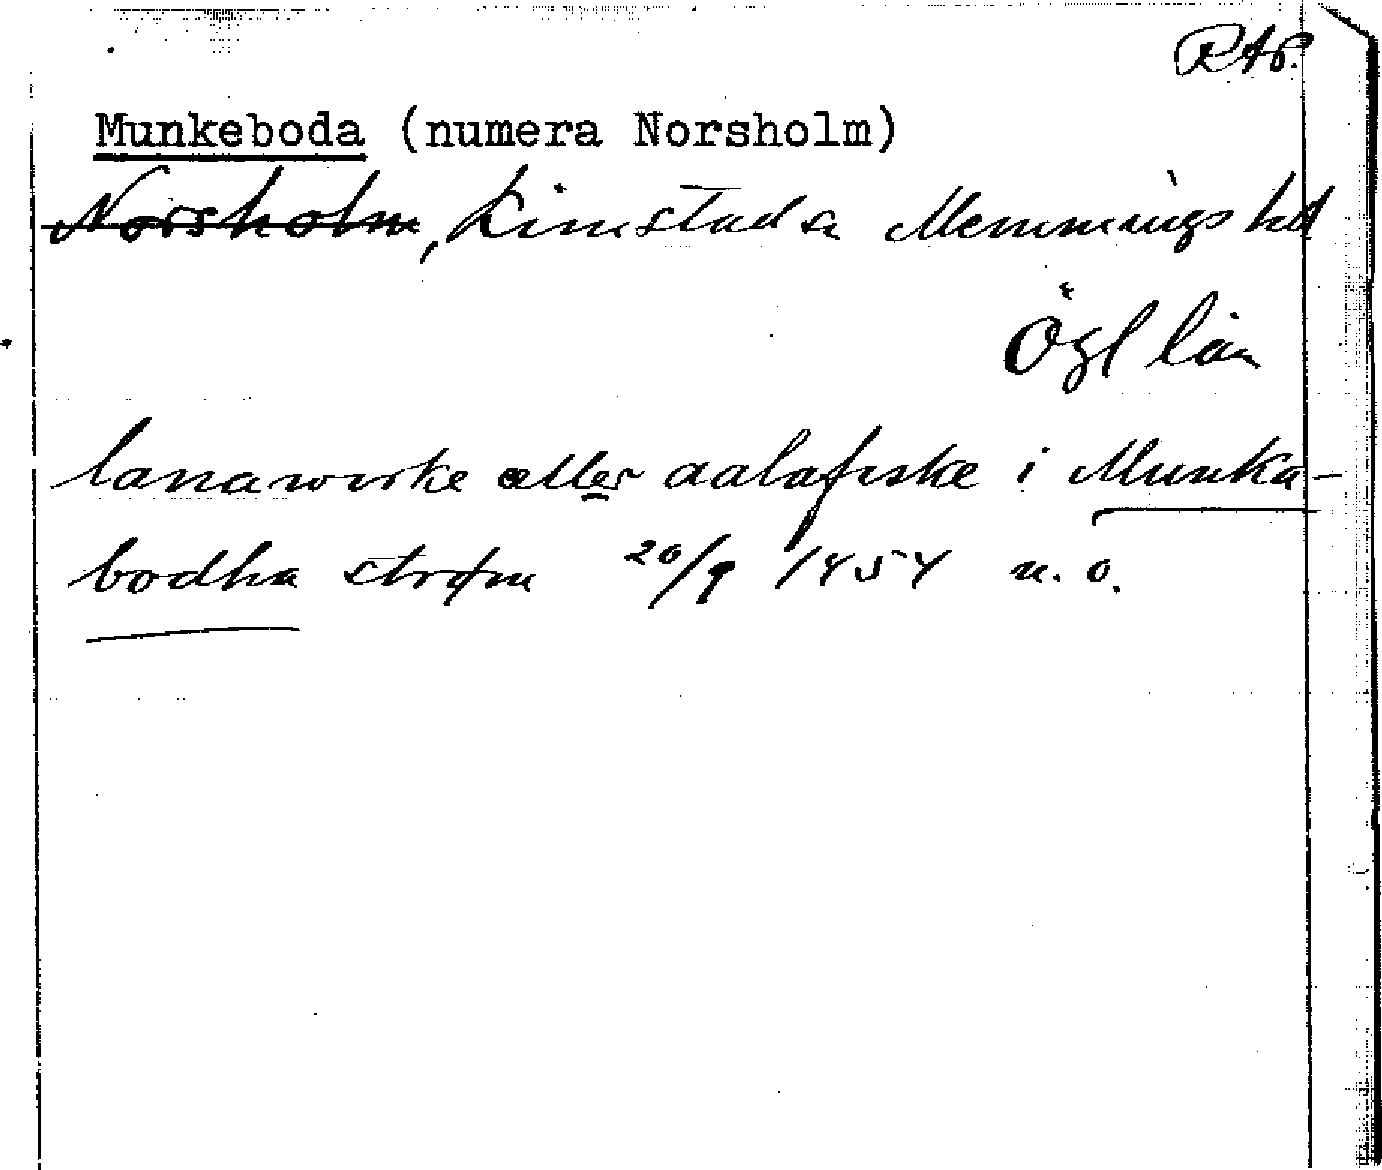 RAp.
Munkeboda (numera Norsholm)
Norsholm, Kimstads sn Memmings hd
Ögl län
lanawirke eller aalafiske i Munka-
bodha strøm 20/9 1454 n. o.